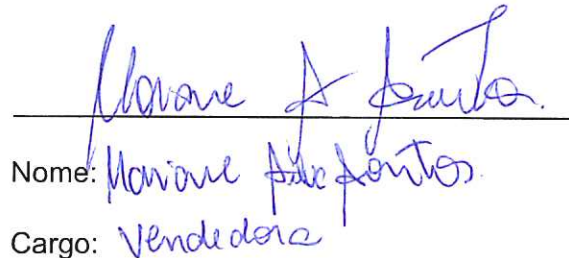 Mariane A Santos.
Nome: Mariane Silva Santos.
Cargo: Vendedora